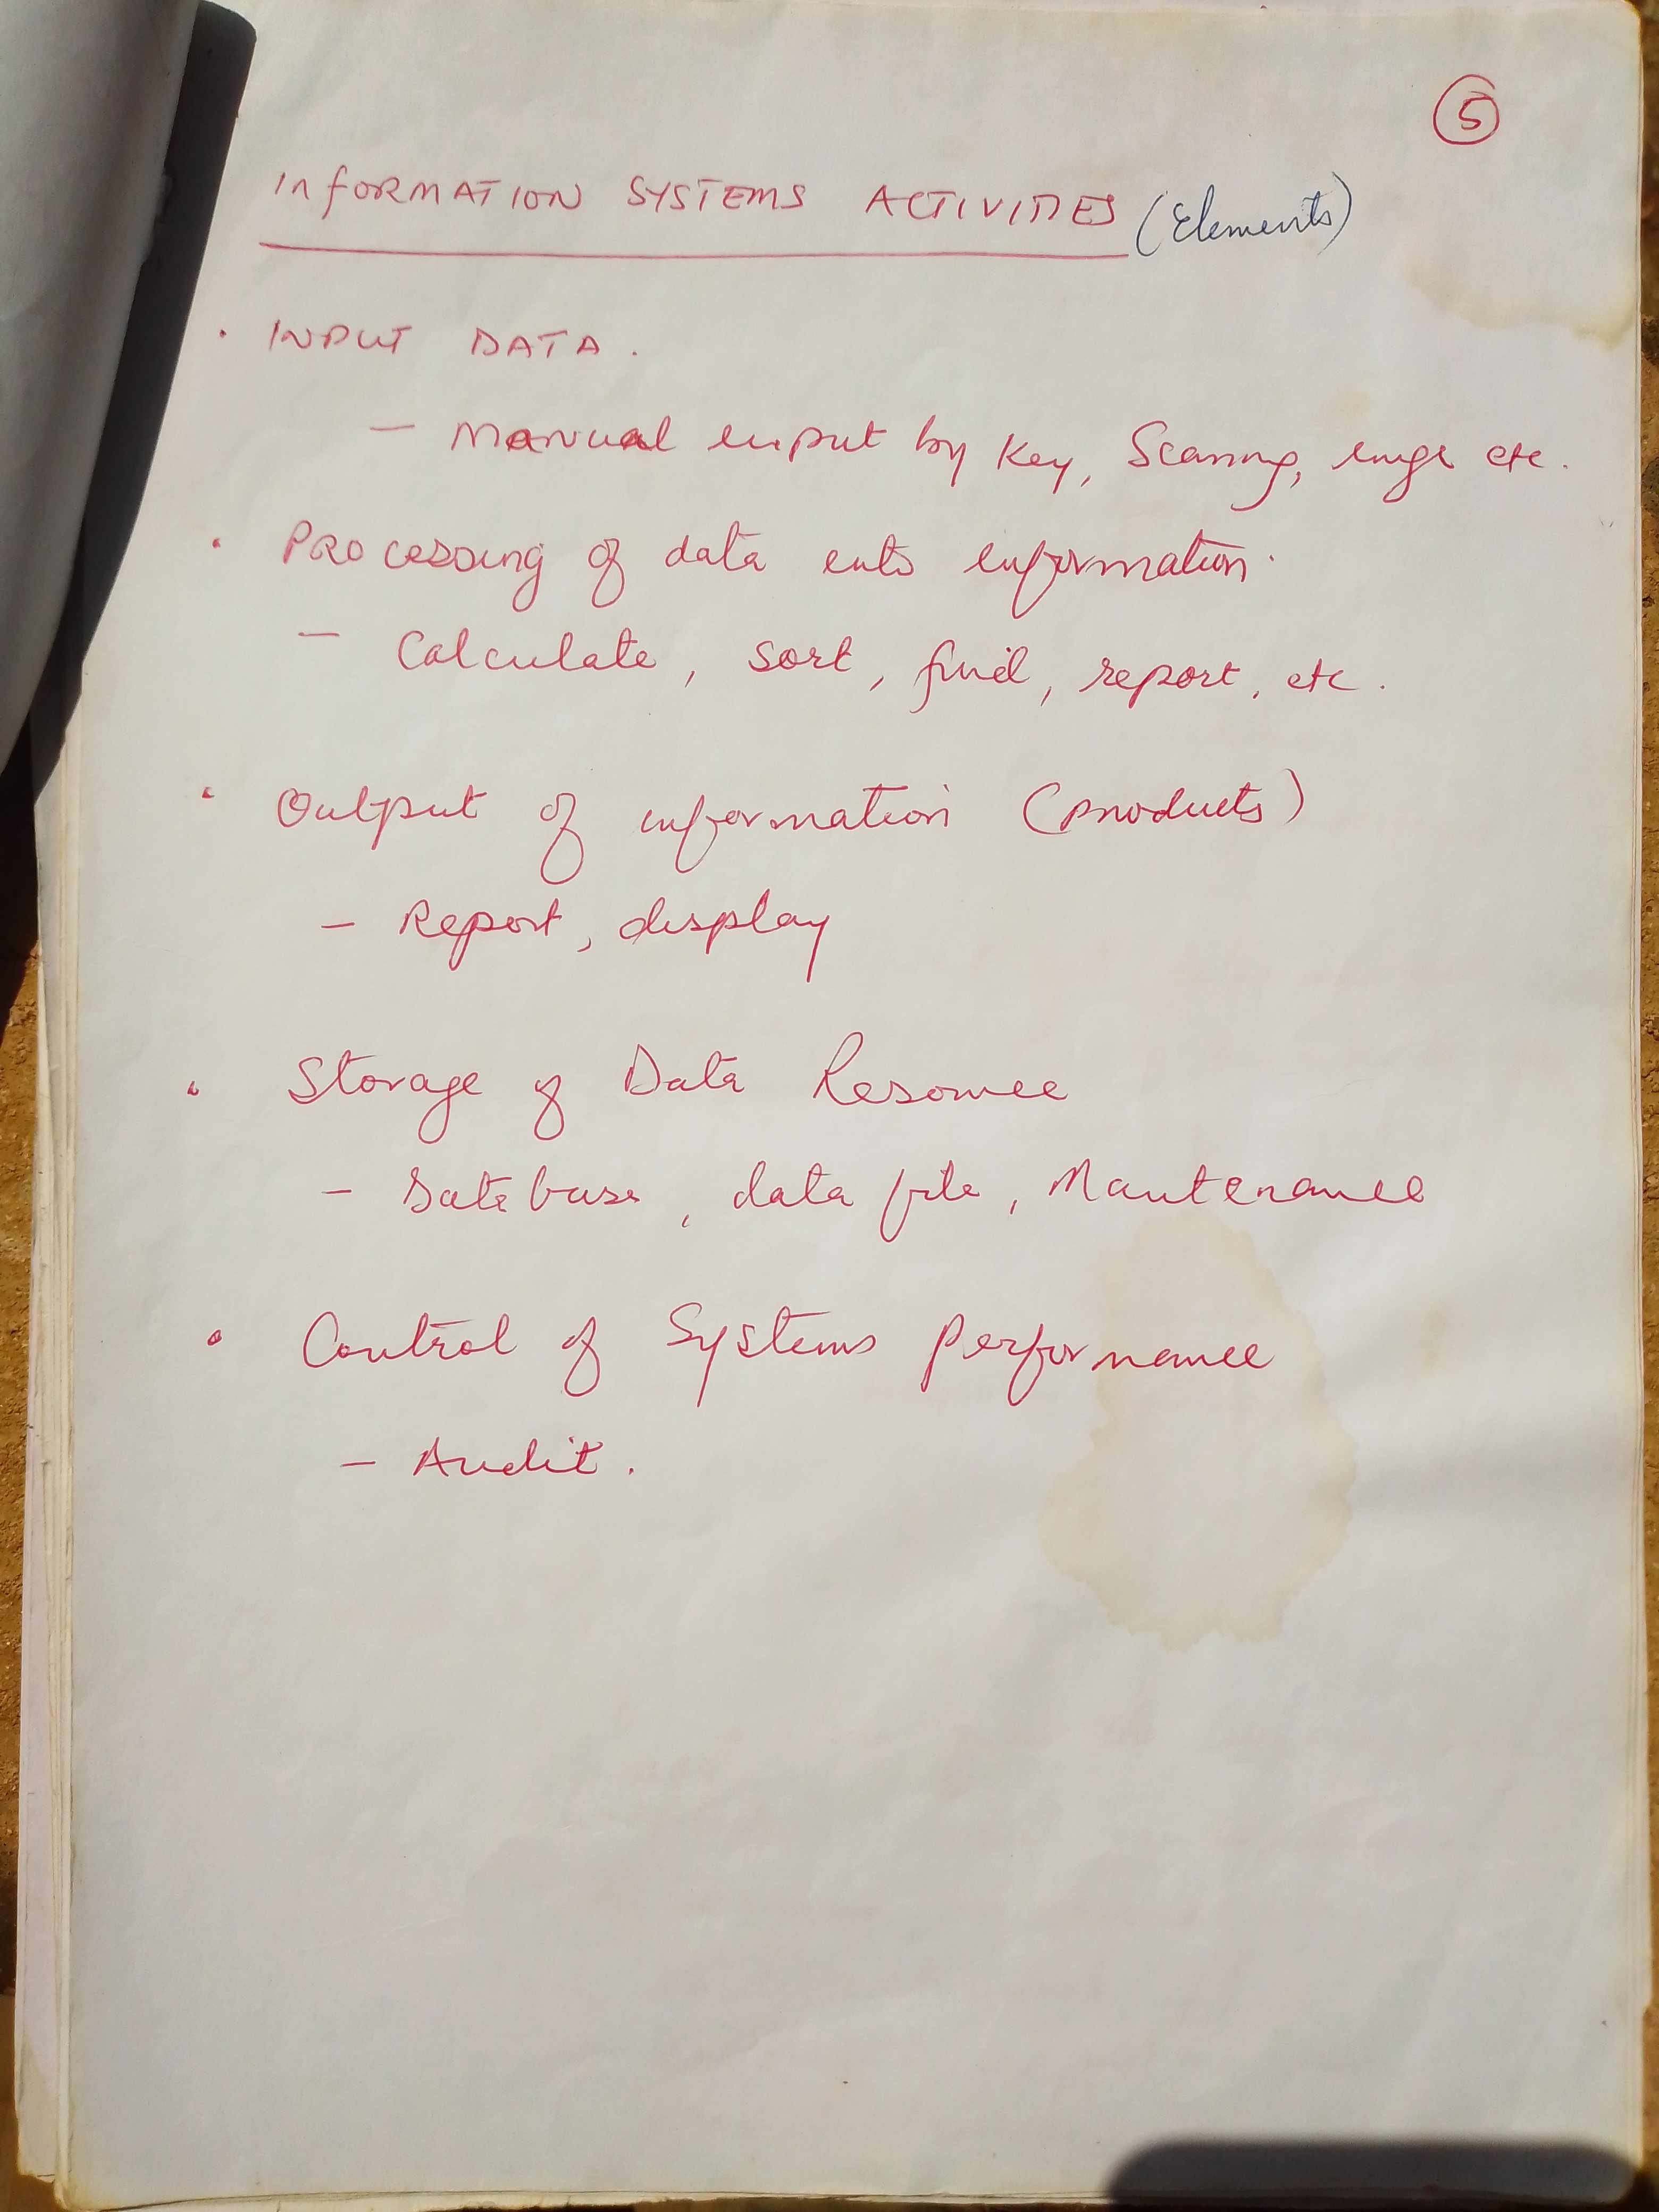 5
INFORMATION SYSTEMS ACTIVITIES (Elements)
• INPUT DATA.
- Manual input by Key, Scaning, etc.
• Processing of data into information.
- Calculate, sort, find, report, etc.
• Output of information (products)
- Report, display
• Storage of Data Resource
- Database, data file, Maintenance
• Control of Systems Performance
- Audit.